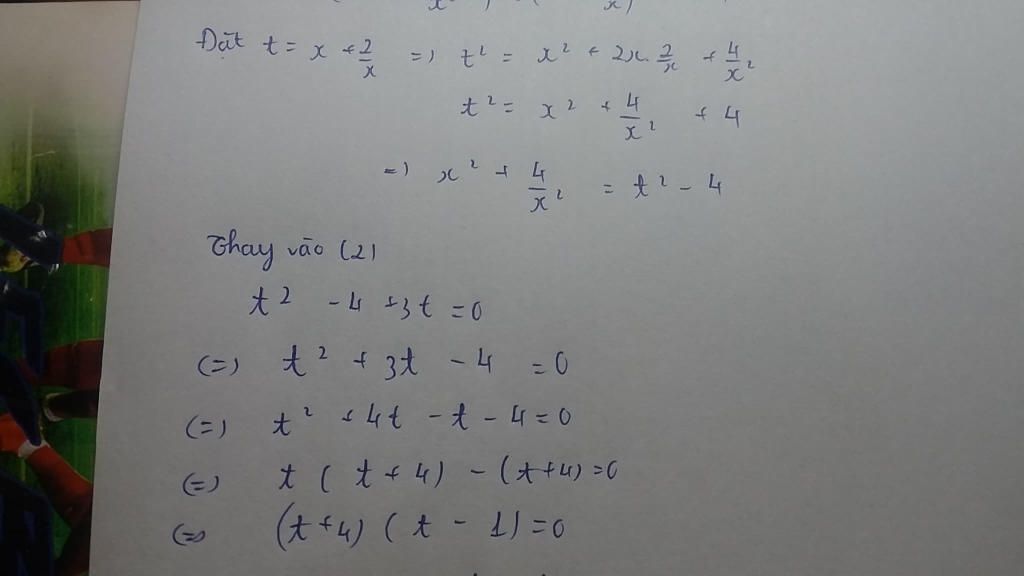 Đặt t = x + 2/x => t² = x² + 2x. 2/x + 4/x²
t² = x² + 4/x² + 4
=> x² + 4/x² = t² - 4
Thay vào (2)
t² - 4 + 3t = 0
(=) t² + 3t - 4 = 0
(=) t² + 4t - t - 4 = 0
(=) t ( t + 4) - (t + 4) = 0
(=) (t + 4) ( t - 1) = 0